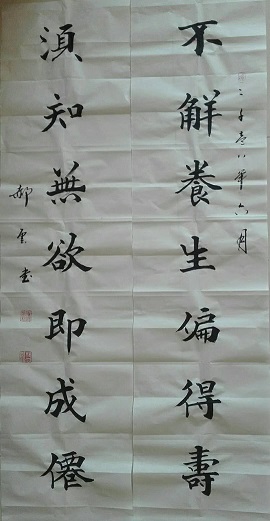 不解養生偏得壽
二千壹八年六月
須知無欲即成僊
郝雲書